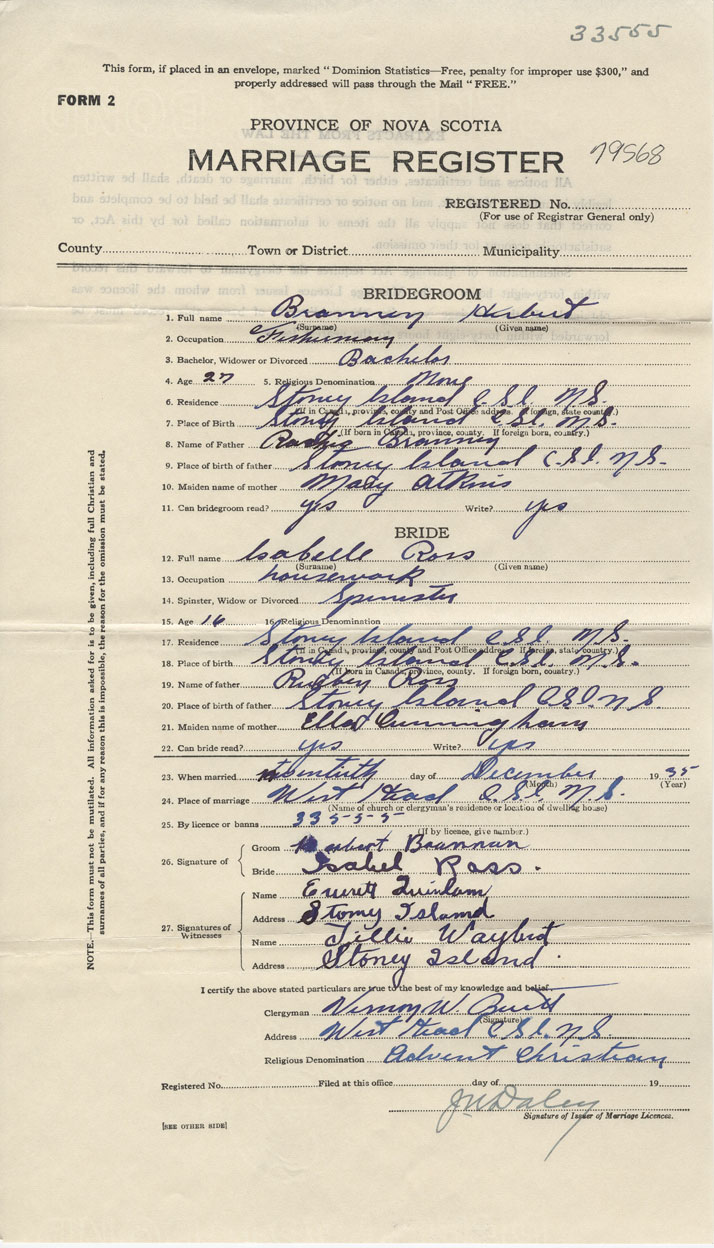 33555
This form, if placed in an envelope, marked "Dominion Statistics—Free, penalty for improper use $300," and
properly addressed will pass through the Mail "FREE."
FORM 2
PROVINCE OF NOVA SCOTIA
MARRIAGE REGISTER 79568
REGISTERED No.
(For use of Registrar General only)
County Town or District Municipality
BRIDEGROOM
1. Full name Brannen Herbert
(Surname) (Given name)
2. Occupation Fisherman
3. Bachelor, Widower or Divorced Bachelor
4. Age 27 5. Religious Denomination None
6. Residence Stoney Island C.S.I. N.S.
(If in Canada, province, county and Post Office address. If foreign, state country.)
7. Place of Birth Stoney Island C.S.I. N.S.
(If born in Canada, province, county. If foreign born, country.)
8. Name of Father Brannen
9. Place of birth of father Stoney Island C.S.I. N.S.
10. Maiden name of mother Mary Atkins
11. Can bridegroom read? yes Write? yes
BRIDE
12. Full name Isabelle Ross
(Surname) (Given name)
13. Occupation housework
14. Spinster, Widow or Divorced Spinster
15. Age 16 16. Religious Denomination
17. Residence Stoney Island C.S.I. N.S.
(If in Canada, province, county and Post Office address. If foreign, state country.)
18. Place of birth Stoney Island C.S.I. N.S.
(If born in Canada, province, county. If foreign born, country.)
19. Name of father Ross
20. Place of birth of father Stoney Island C.S.I. N.S.
21. Maiden name of mother Cunningham
22. Can bride read? yes Write? yes
23. When married twentieth day of December 1935
(Month) (Year)
24. Place of marriage West Head C.S.I. N.S.
(Name of church or clergyman's residence or location of dwelling house)
25. By licence or banns 33555
(If by licence, give number.)
26. Signature of Groom Herbert Brannen
Bride Isabel Ross.
27. Signatures of Witnesses Name Everett Quinlan
Address Stony Island
Name Tillie Waybret
Address Stoney Island.
I certify the above stated particulars are true to the best of my knowledge and belief.
Clergyman W.
(Signature)
Address West Head C.S.I. N.S.
Religious Denomination Advent Christian
Registered No. Filed at this office day of 19
Daley
Signature of Issuer of Marriage Licences.
[SEE OTHER SIDE]
NOTE.—This form must not be mutilated. All information asked for is to be given, including full Christian and
surnames of all parties, and if for any reason this is impossible, the reason for the omission must be stated.